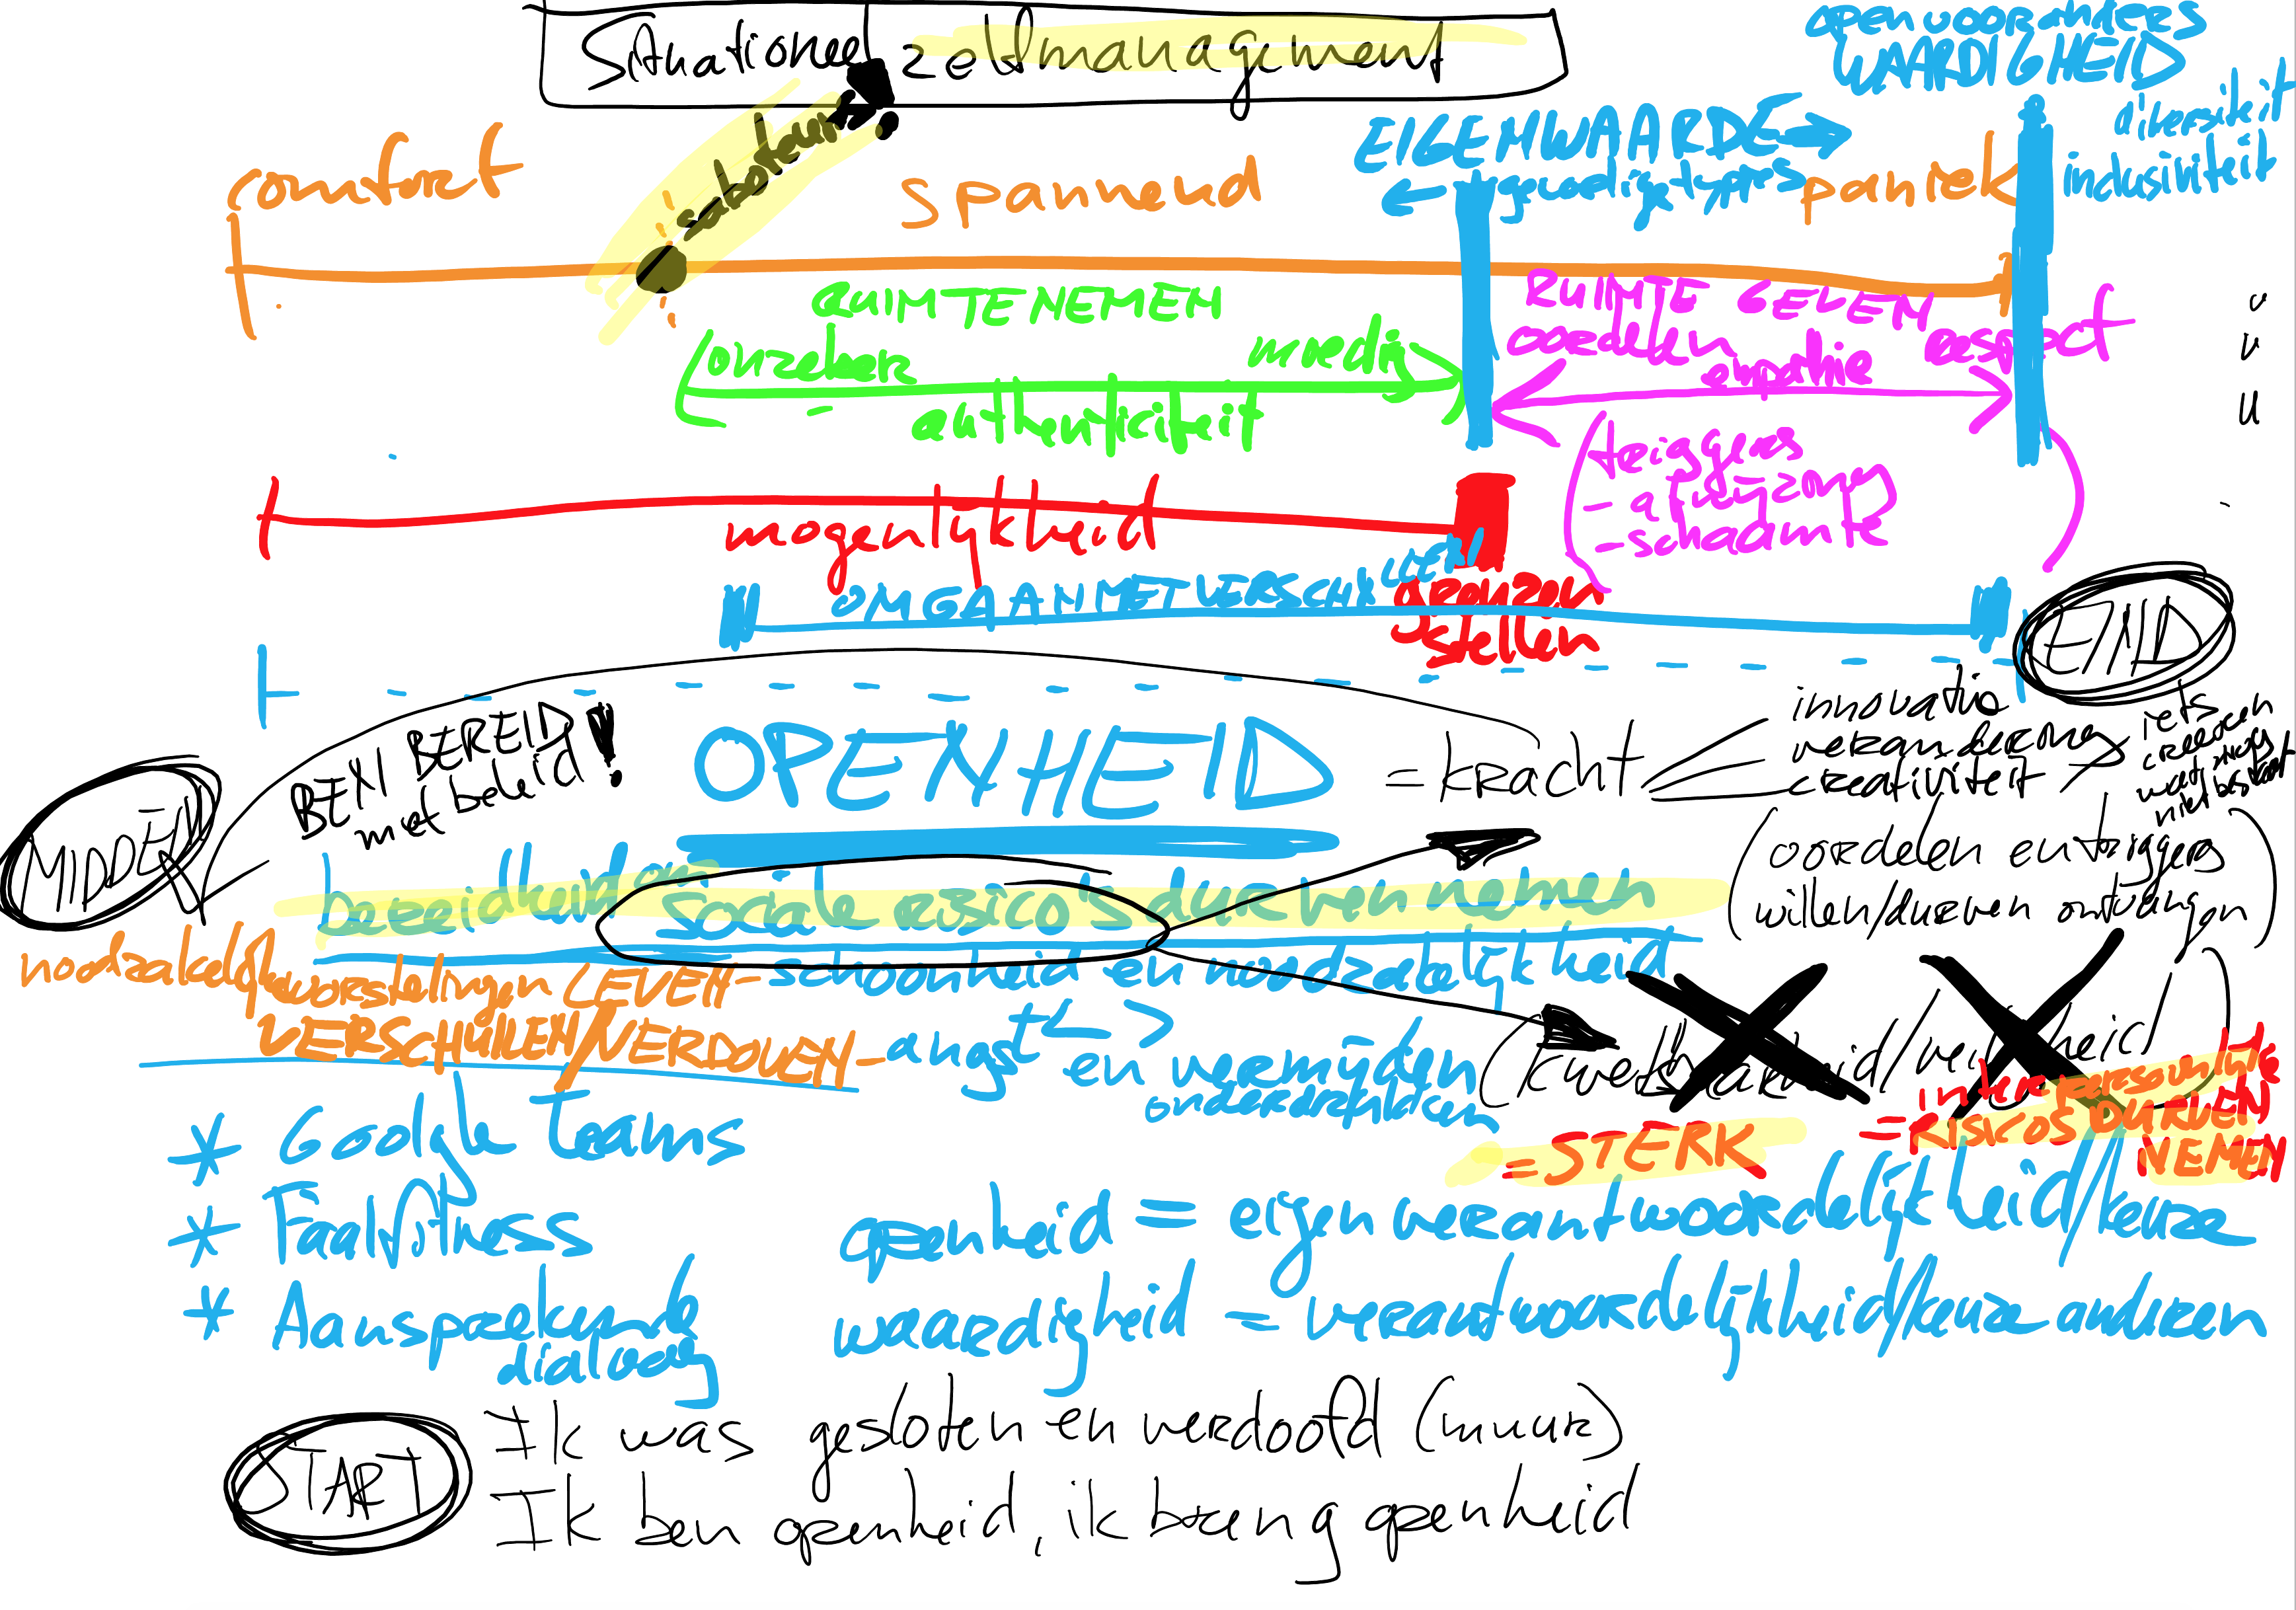 Situationeel zelfmanagement
open voor anders
WAARDIGHEID
diversiteit
inclusiviteit
EIGENWAARDE →
← gevoelige types
comfort
spannend
paniek
RUIMTE NEMEN
onzeker
moedig
authenticiteit
RUIMTE GEVEN
oordelen
empathie
respect
triggers
- afwijzing
- schaamte
mogenlijkheid
OMGAAN MET VERSCHILLEN
grenzen
stellen
EIND
BEN BEREID!
met beleid
OPENHEID
= kracht
innovatie
verandering
creativiteit
iets
creëeren
wat nog
niet bestaat
MIDDEN
(oordelen en triggers
willen/durven ontvangen)
bereidheid om sociale risico's durven nemen
noodzakelijke worstelingen LEVEN - schoonheid en noodzakelijkheid
VERSCHUILEN/VERDOVEN - angst en vermijden
onderdrukken
(kwetsbaarheid/veiligheid)
= STERK
= intermenselijke
RISICOS DURVEN
NEMEN
* Google teams
* Faalfitness
* Aansprekende
dialoog
openheid = eigen verantwoordelijkheid/keuze
waardigheid = verantwoordelijkheid/keuze anderen
START
Ik was gesloten en verdoofd (muur)
Ik ben openheid, ik breng openheid